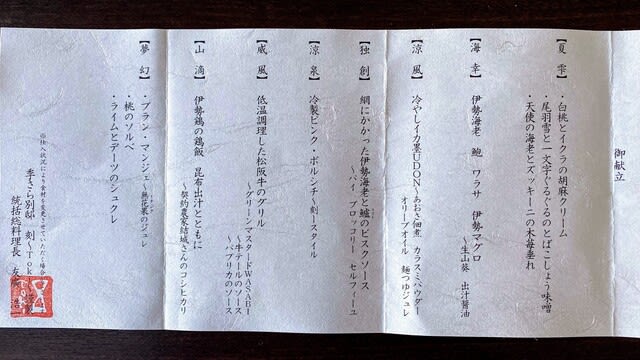 御献立
【夏雫】
・白桃とイクラの胡麻クリーム
・尾羽雪と一文字ぐるぐるのとばこしょう味噌
・天使の海老とズッキーニの木苺垂れ
【海幸】
伊勢海老 鮑 ワラサ 伊勢マグロ
〜生山葵 出汁醤油
【涼風】
冷やしイカ墨UDON〜あおさ佃煮 カラスミパウダー
オリーブオイル 麺つゆジュレ
【独創】
網にかかった伊勢海老と鱸のビスクソース
〜パイ ブロッコリー セルフィーユ
【涼泉】
冷製ピンク・ボルシチ〜刻一スタイル
【威風】
低温調理した松阪牛のグリル
〜グリーンマスタードWASABI
〜牛テールのソース
〜パプリカのソース
【山滴】
伊勢鶏の鶏飯 昆布出汁とともに
〜契約農家結城さんのコシヒカリ
【夢幻】
・ブラン・マンジェ〜無花果のジュレ
・桃のソルベ
・ライムとデーツのシュクレ
※仕入状況により食材を変更させていただく場合
季さら別邸 刻〜Tok
統括総料理長 友